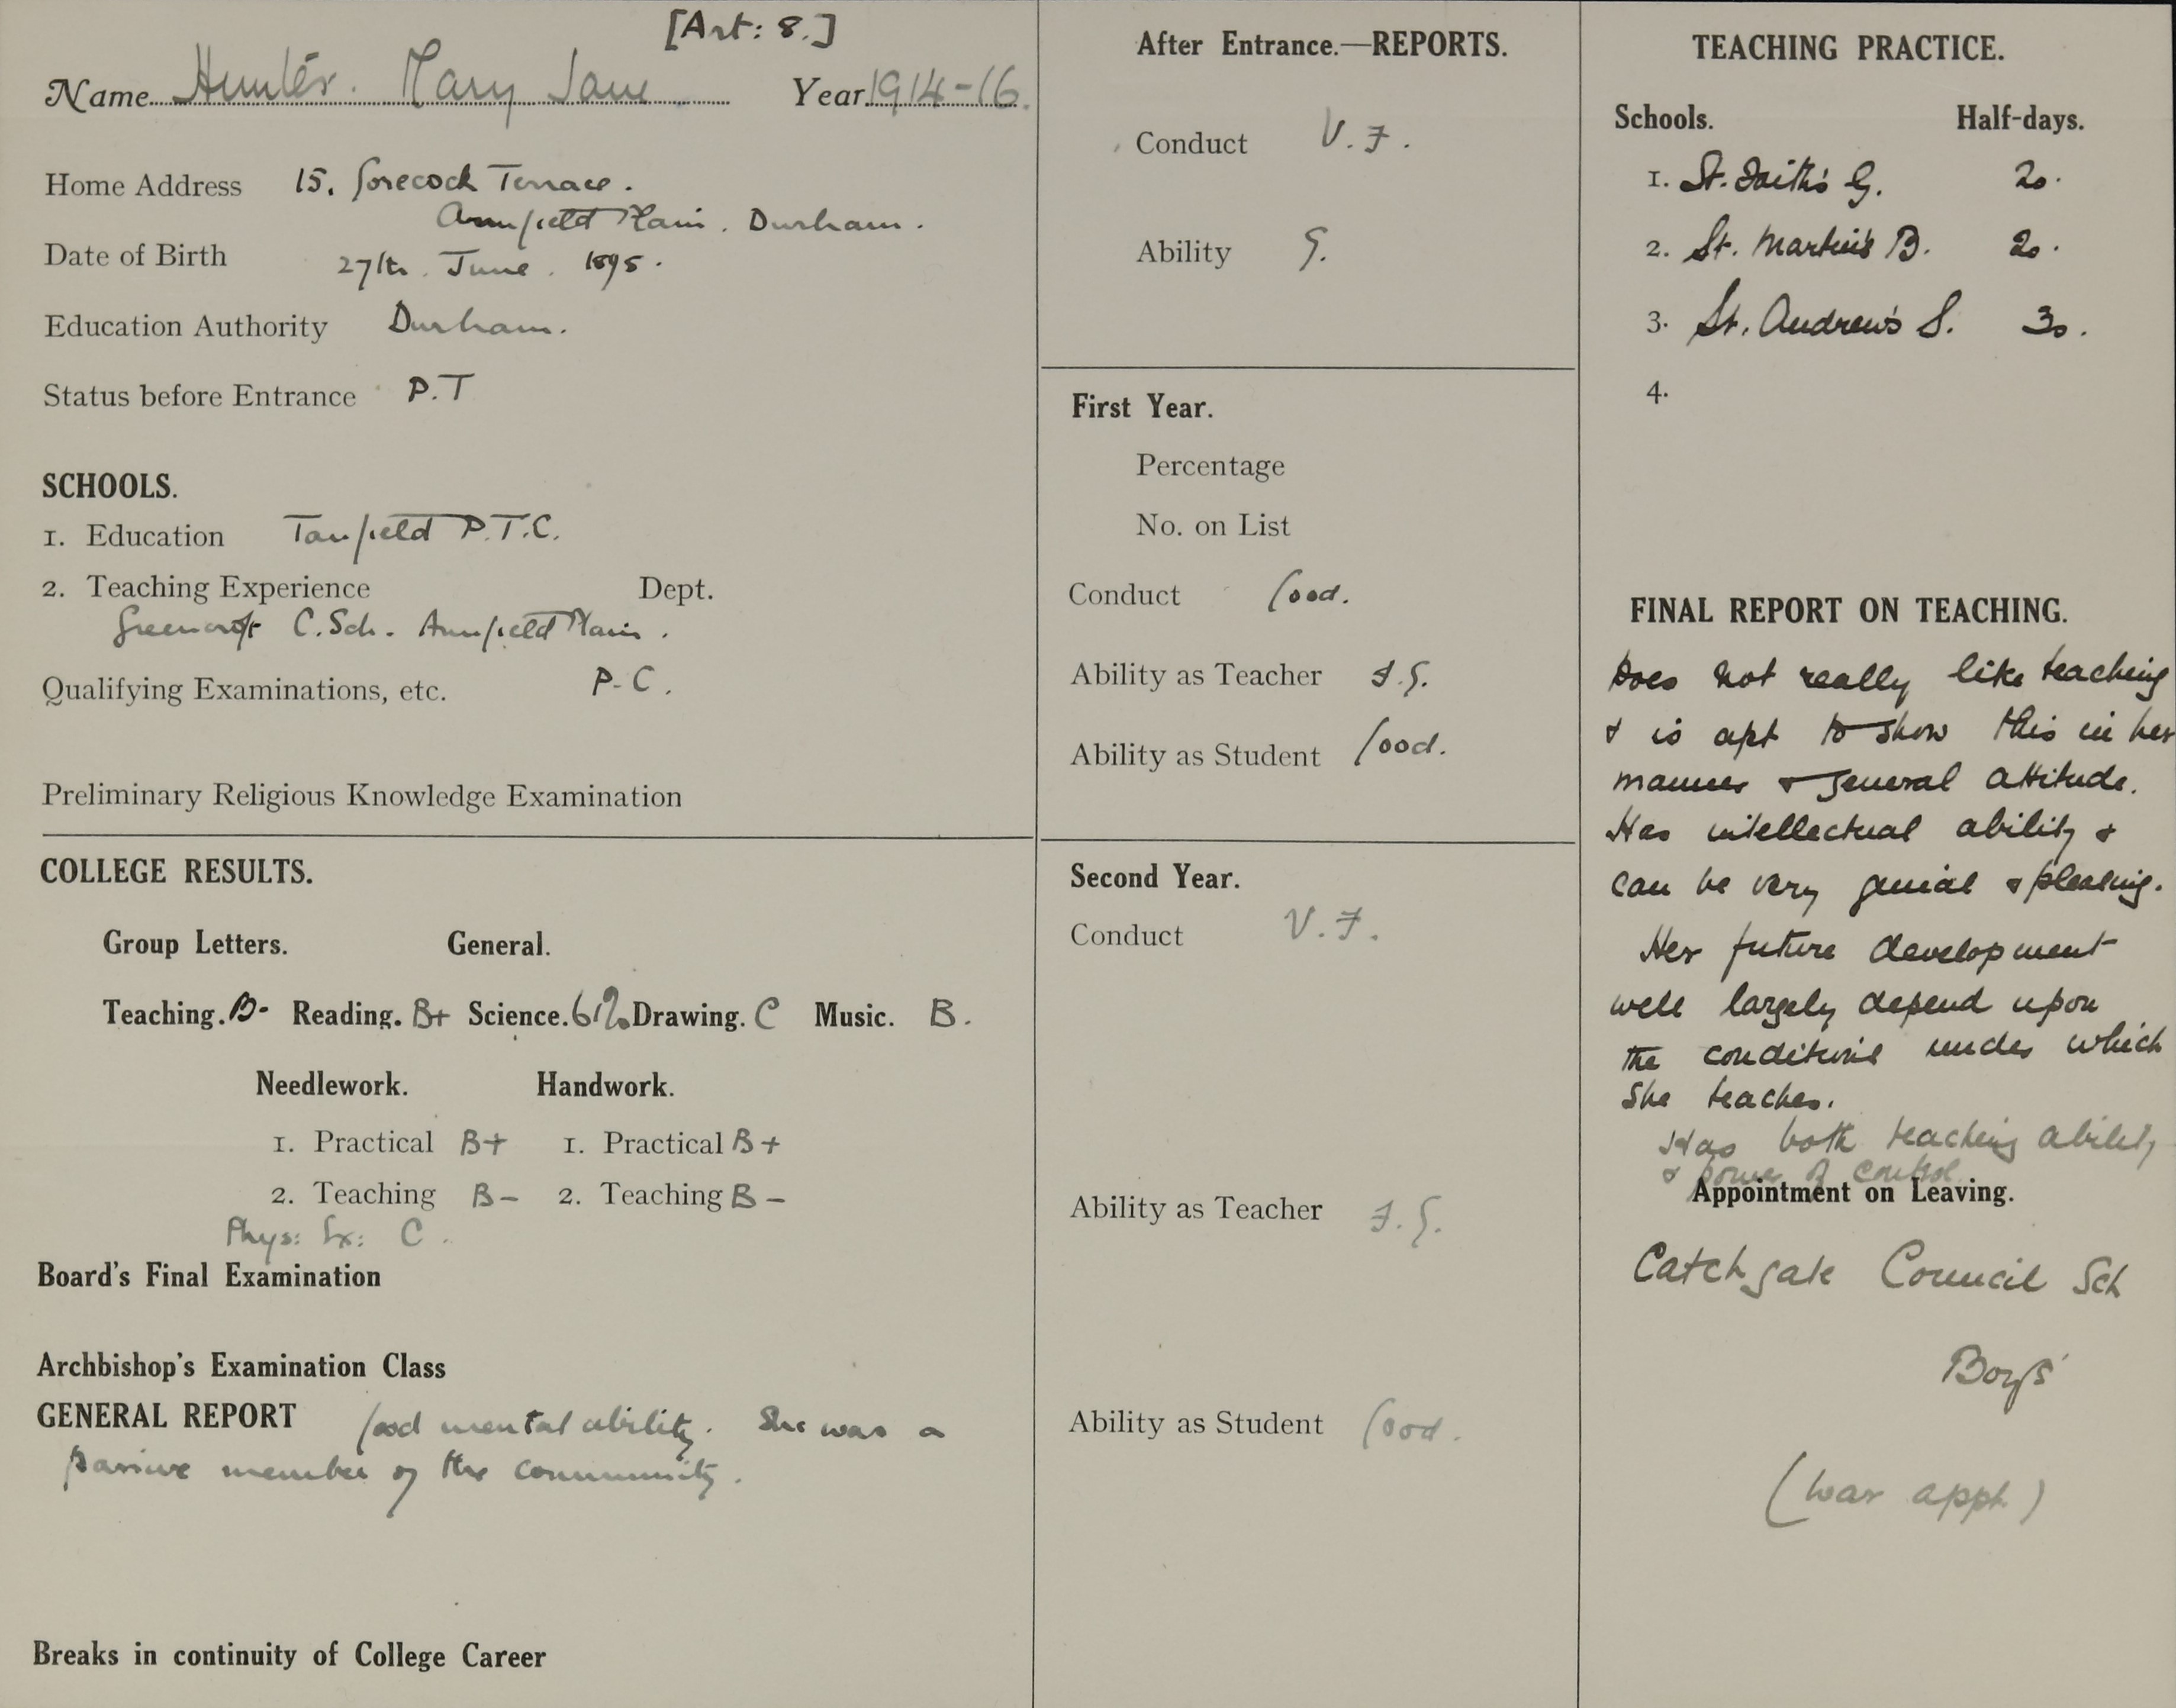 [Art: 8.]
Name Hunter. Mary Jane Year 1914-16.
Home Address 15. Gorecock Terrace.
Annfield Plain. Durham.
Date of Birth 27th. June. 1895.
Education Authority Durham.
Status before Entrance P.T
SCHOOLS.
1. Education Tanfield P.T.C.
2. Teaching Experience Dept.
Greencroft C. Sch. Annfield Plain.
Qualifying Examinations, etc. P-C.
Preliminary Religious Knowledge Examination
COLLEGE RESULTS.
Group Letters. General.
Teaching. B- Reading. B+ Science. Drawing. C Music. B.
Needlework. Handwork.
1. Practical B+ 1. Practical B+
2. Teaching B- 2. Teaching B-
Phys: Ex: C.
Board's Final Examination
Archbishop's Examination Class
GENERAL REPORT Good mental ability. She was a
passive member of the community.
Breaks in continuity of College Career
After Entrance.—REPORTS.
Conduct V.F.
Ability G.
First Year.
Percentage
No. on List
Conduct Good.
Ability as Teacher F.G.
Ability as Student Good.
Second Year.
Conduct V.F.
Ability as Teacher F.G.
Ability as Student Good.
TEACHING PRACTICE.
Schools. Half-days.
1. St. Faith's G. 20.
2. St. Martin's B. 20.
3. St. Andrew's S. 30.
4.
FINAL REPORT ON TEACHING.
Does not really like teaching
& is apt to show this in her
manner & general attitude.
Has intellectual ability &
can be very genial & pleasing.
Her future development
will largely depend upon
the conditions under which
she teaches.
Has both teaching ability
& power of control.
Appointment on Leaving.
Catchgate Council Sch
Boys'
(War appt.)